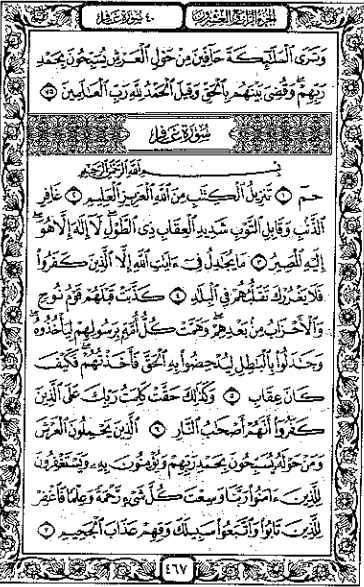 الجزء الرابع والعشرون ٤٠ سورة غافر
وَتَرَى ٱلْمَلَٰٓئِكَةَ حَآفِّينَ مِنْ حَوْلِ ٱلْعَرْشِ يُسَبِّحُونَ بِحَمْدِ
رَبِّهِمْ ۖ وَقُضِىَ بَيْنَهُم بِٱلْحَقِّ وَقِيلَ ٱلْحَمْدُ لِلَّهِ رَبِّ ٱلْعَٰلَمِينَ ٧٥
سُورَةُ غَافِر
بِسْمِ ٱللَّهِ ٱلرَّحْمَٰنِ ٱلرَّحِيمِ
حمٓ ١ تَنزِيلُ ٱلْكِتَٰبِ مِنَ ٱللَّهِ ٱلْعَزِيزِ ٱلْعَلِيمِ ٢ غَافِرِ
ٱلذَّنۢبِ وَقَابِلِ ٱلتَّوْبِ شَدِيدِ ٱلْعِقَابِ ذِى ٱلطَّوْلِ ۖ لَآ إِلَٰهَ إِلَّا هُوَ ۖ
إِلَيْهِ ٱلْمَصِيرُ ٣ مَا يُجَٰدِلُ فِىٓ ءَايَٰتِ ٱللَّهِ إِلَّا ٱلَّذِينَ كَفَرُوا۟
فَلَا يَغْرُرْكَ تَقَلُّبُهُمْ فِى ٱلْبِلَٰدِ ٤ كَذَّبَتْ قَبْلَهُمْ قَوْمُ نُوحٍ
وَٱلْأَحْزَابُ مِنۢ بَعْدِهِمْ ۖ وَهَمَّتْ كُلُّ أُمَّةٍۭ بِرَسُولِهِمْ لِيَأْخُذُوهُ ۖ
وَجَٰدَلُوا۟ بِٱلْبَٰطِلِ لِيُدْحِضُوا۟ بِهِ ٱلْحَقَّ فَأَخَذْتُهُمْ ۖ فَكَيْفَ
كَانَ عِقَابِ ٥ وَكَذَٰلِكَ حَقَّتْ كَلِمَتُ رَبِّكَ عَلَى ٱلَّذِينَ
كَفَرُوٓا۟ أَنَّهُمْ أَصْحَٰبُ ٱلنَّارِ ٦ ٱلَّذِينَ يَحْمِلُونَ ٱلْعَرْشَ
وَمَنْ حَوْلَهُۥ يُسَبِّحُونَ بِحَمْدِ رَبِّهِمْ وَيُؤْمِنُونَ بِهِۦ وَيَسْتَغْفِرُونَ
لِلَّذِينَ ءَامَنُوا۟ رَبَّنَا وَسِعْتَ كُلَّ شَىْءٍ رَّحْمَةً وَعِلْمًا فَٱغْفِرْ
لِلَّذِينَ تَابُوا۟ وَٱتَّبَعُوا۟ سَبِيلَكَ وَقِهِمْ عَذَابَ ٱلْجَحِيمِ ٧
٤٦٧